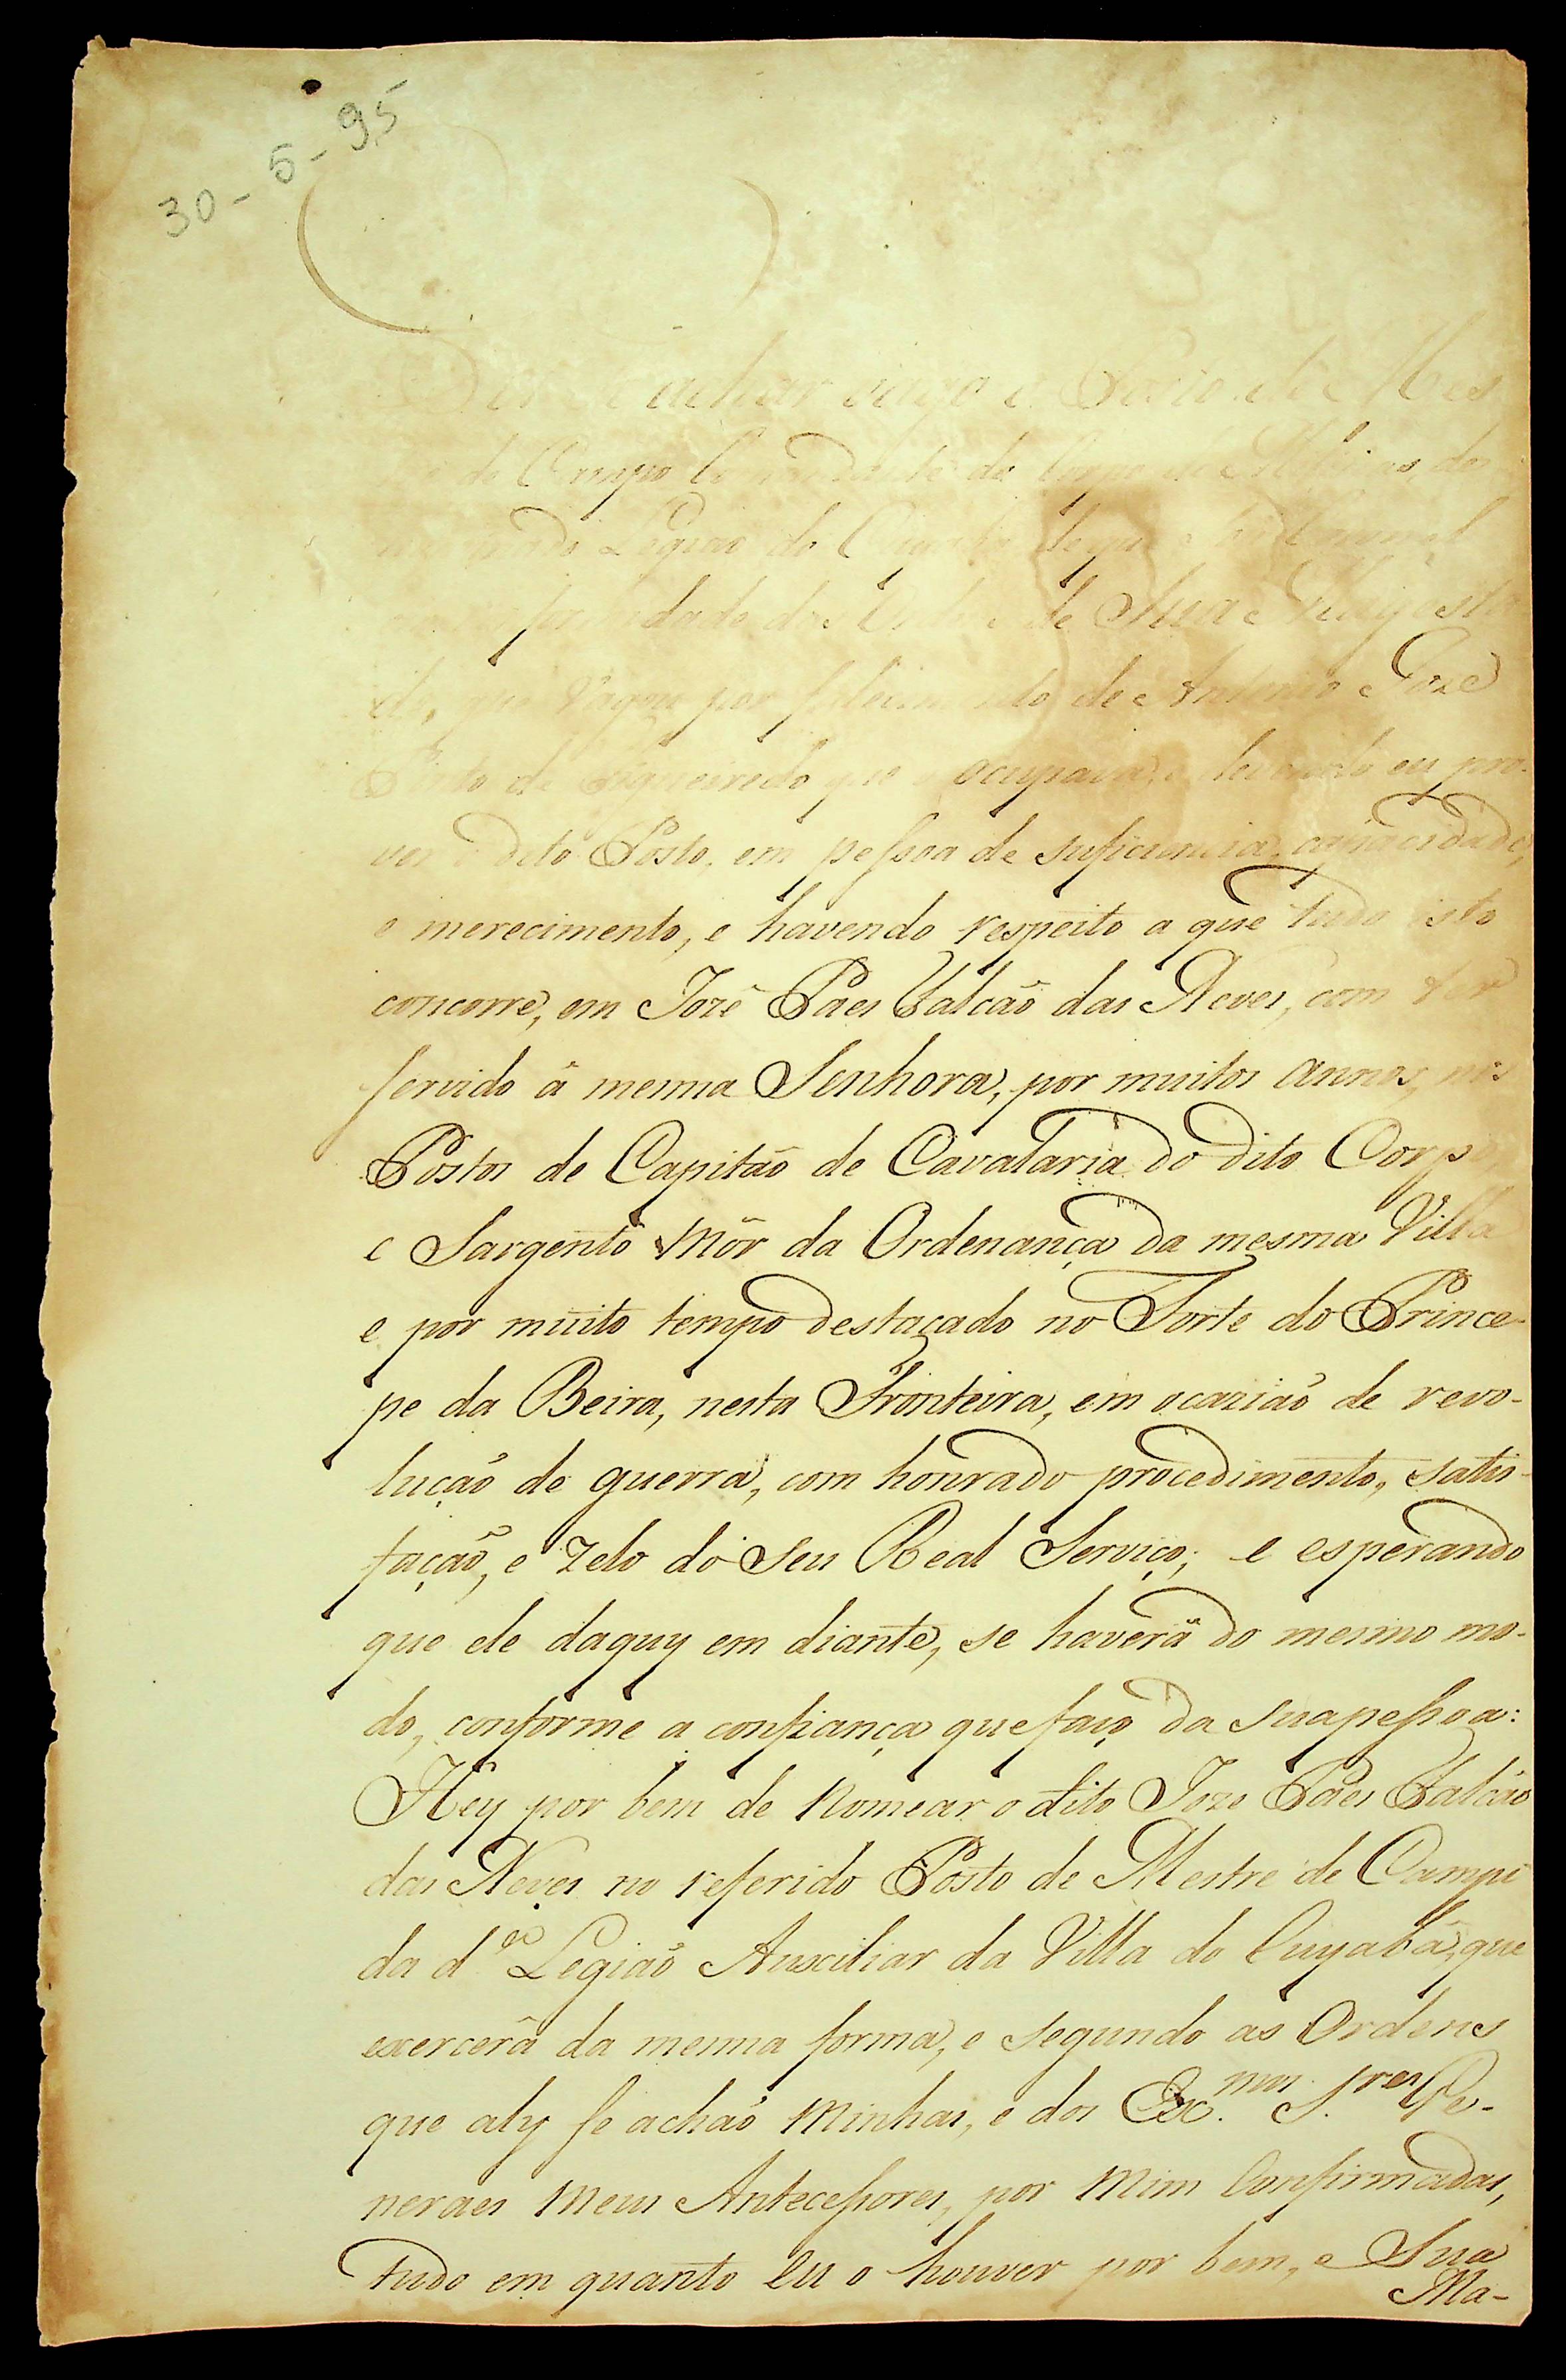 30-5-95
achar vago o Posto de Mes
do Campo do
Legiaõ do
dade da de Sua Magesta
de, que Vagou por falecimento de Antonio Jozé
Pinto de Figueiredo que o ocupava, e devendo eu pro-
ver o dito Posto, em peſsoa de suficiencia, capacidade,
e merecimento, e havendo respeito a que tudo isto
concorre, em Jozé Paes Falcaõ das Neves, com ter
servido á mesma Senhora, por muitos annos, nos
Postos de Capitaõ de Cavalaria do dito Corpo,
e Sargento Mór da Ordenança da mesma Villa
e por muito tempo destacado no Forte do Prince-
pe da Beira, nesta Fronteira, em ocaziaõ de revo-
luçaõ de guerra, com honrado procedimento, satis-
façaõ, e zelo do Seu Real Serviço; e esperando
que ele daquy em diante, se haverâ do mesmo mo-
do, conforme a confiança que faço da sua peſsoa:
Hey por bem de Nomear o dito Joze Paes Falcaõ
das Neves no referido Posto de Mestre de Campo
da d.ª Legiaõ Auxciliar da Villa do Cuyabá, que
exercerâ da mesma forma, e segundo as Ordens
que aly se achaõ Minhas, e dos Ex.mos S.res Ge-
neraes Meus Anteceſsores, por Mim Confirmadas,
tudo em quanto Eu o houver por bem, e Sua
Ma-